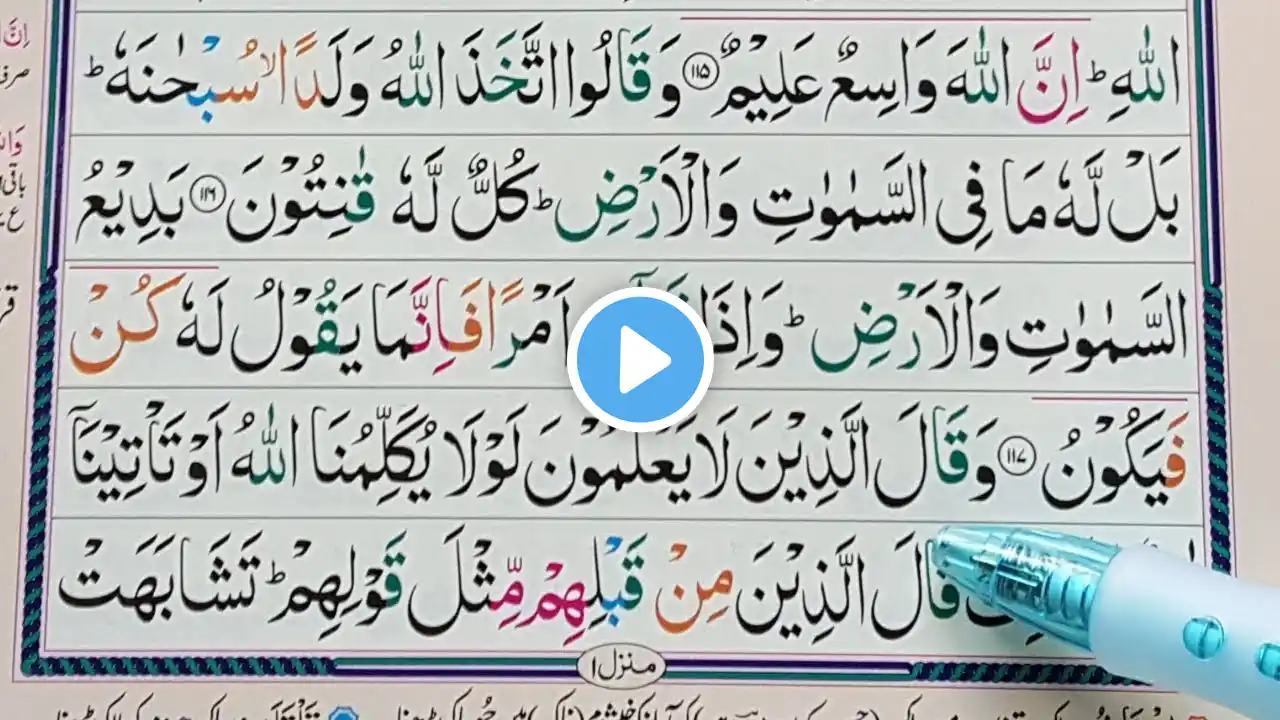 اللّٰهِ ؕ اِنَّ اللّٰهَ وَاسِعٌ عَلِيْمٌ ۝۱۱۵ وَقَالُوا اتَّخَذَ اللّٰهُ وَلَدًا ۙ سُبْحٰنَهٗ ؕ
بَلْ لَّهٗ مَا فِى السَّمٰوٰتِ وَالْاَرْضِ ؕ كُلٌّ لَّهٗ قٰنِتُوْنَ ۝۱۱۶ بَدِيْعُ
السَّمٰوٰتِ وَالْاَرْضِ ؕ وَاِذَا اَمْرًا فَاِنَّمَا يَقُوْلُ لَهٗ كُنْ
فَيَكُوْنُ ۝۱۱۷ وَقَالَ الَّذِيْنَ لَا يَعْلَمُوْنَ لَوْلَا يُكَلِّمُنَا اللّٰهُ اَوْ تَاْتِيْنَاۤ
قَالَ الَّذِيْنَ مِنْ قَبْلِهِمْ مِّثْلَ قَوْلِهِمْ ؕ تَشَابَهَتْ
منزل ۱